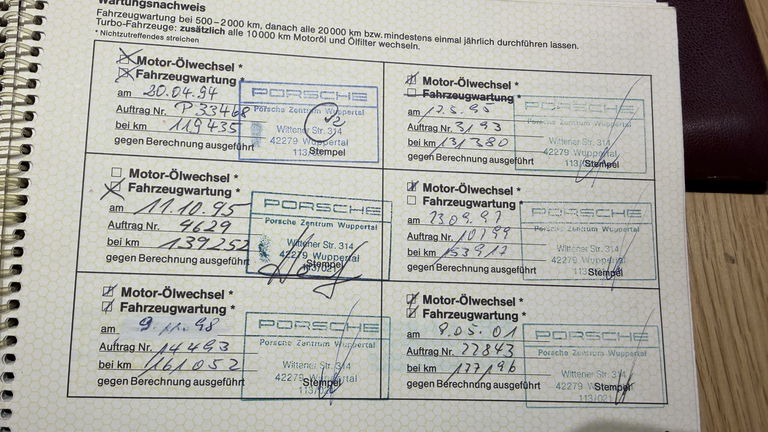 Wartungsnachweis
Fahrzeugwartung bei 500–2000 km, danach alle 20000 km bzw. mindestens einmal jährlich durchführen lassen.
Turbo-Fahrzeuge: zusätzlich alle 10000 km Motoröl und Ölfilter wechseln.
* Nichtzutreffendes streichen
Motor-Ölwechsel *
Fahrzeugwartung *
am 20.04.94
Auftrag Nr. P 33468
bei km 119435
gegen Berechnung ausgeführt
PORSCHE
Porsche Zentrum Wuppertal
Wittener Str. 314
42279 Wuppertal
113/021
Stempel
Motor-Ölwechsel *
Fahrzeugwartung *
am 17.3.95
Auftrag Nr. 3193
bei km 131380
gegen Berechnung ausgeführt
PORSCHE
Porsche Zentrum Wuppertal
Wittener Str. 314
42279 Wuppertal
113/021
Stempel
Motor-Ölwechsel *
Fahrzeugwartung *
am 11.10.95
Auftrag Nr. 9629
bei km 139252
gegen Berechnung ausgeführt
PORSCHE
Porsche Zentrum Wuppertal
Wittener Str. 314
42279 Wuppertal
113/021
Stempel
Motor-Ölwechsel *
Fahrzeugwartung *
am 23.09.97
Auftrag Nr. 10199
bei km 153917
gegen Berechnung ausgeführt
PORSCHE
Porsche Zentrum Wuppertal
Wittener Str. 314
42279 Wuppertal
113/021
Stempel
Motor-Ölwechsel *
Fahrzeugwartung *
am 9.11.98
Auftrag Nr. 14493
bei km 161052
gegen Berechnung ausgeführt
PORSCHE
Porsche Zentrum Wuppertal
Wittener Str. 314
42279 Wuppertal
113/021
Stempel
Motor-Ölwechsel *
Fahrzeugwartung *
am 9.05.01
Auftrag Nr. 22843
bei km 177196
gegen Berechnung ausgeführt
PORSCHE
Porsche Zentrum Wuppertal
Wittener Str. 314
42279 Wuppertal
113/021
Stempel